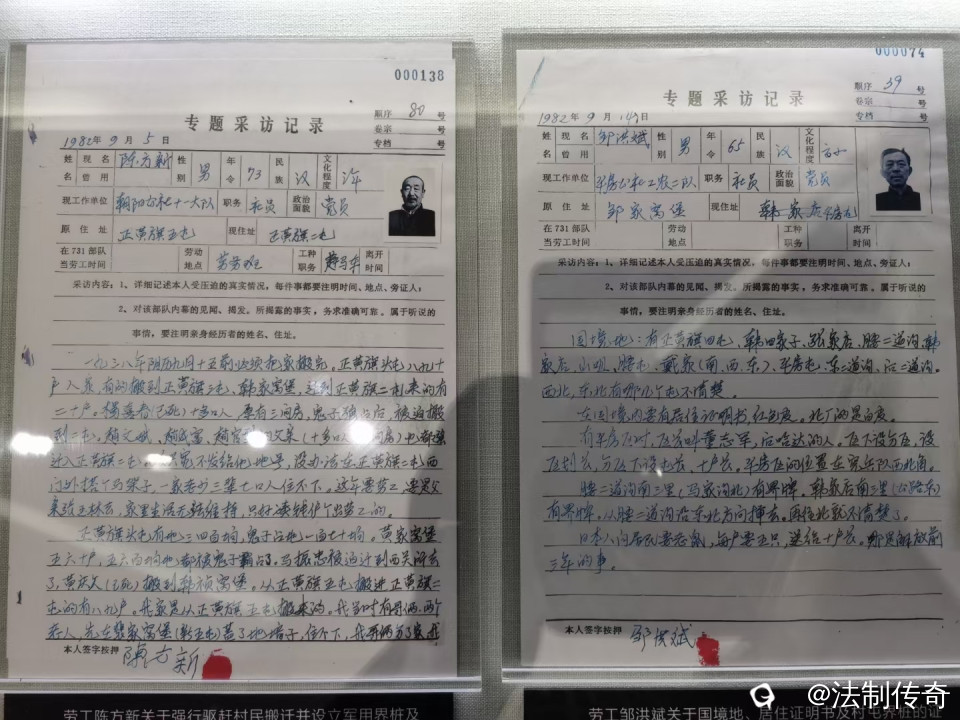 000138
顺序 80 号
卷宗 号
专档 号
专题采访记录
1982年9月5日
姓名 现名 陈方新 性别 男 年令 73 民族 汉 文化程度
曾用
现工作单位 朝阳公社十一大队 职务 社员 政治面貌 党员
原住址 正黄旗五屯 现住址 正黄旗二屯
在731部队当劳工时间 劳动地点 劳务班 工种职务 离开时间
采访内容：1、详细记述本人受压迫的真实情况，每件事都要注明时间、地点、旁证人；
2、对该部队内幕的见闻、揭发。所揭露的事实，务求准确可靠。属于听说的
事情，要注明亲身经历者的姓名、住址。
一九三八年阴历九月十五前必须把家搬完。正黄旗头屯八九十
户人家有的搬到正黄旗三屯、韩家窝堡，搬到正黄旗二屯来的有
二十户。杨 (已死)十多口人原有三间房，鬼子 后，被迫搬
到二屯。赵文斌、 (十多口人 间房)也都
进入正黄旗二屯 不发给他地号，没办法在正黄旗二屯西
门外搭个马架子，一家老少三辈七口人住不下。这年要劳工，
家里生活无法维持，只好 出劳工的。
正黄旗头屯有地三四百垧，鬼子占地一百七十垧。黄家窝堡
五六十户，五六百垧地都被鬼子霸占了。马振忠被逼迁到西关
了，黄 (已死)搬到韩 窝堡。从正黄旗五屯搬进正黄旗二
屯的有八九户。我家是从正黄旗五屯搬来的。我当时有哥俩，两个
老人，先在 家窝堡(新五屯)盖了地 子，住 下，我哥俩
本人签字按押 陈方新
000074
顺序 39 号
卷宗 号
专档 号
专题采访记录
1982年9月14日
姓名 现名 邹洪斌 性别 男 年令 65 民族 汉 文化程度 高小
曾用
现工作单位 平房公社工农二队 职务 社员 政治面貌 党员
原住址 邹家窝堡 现住址 韩家店
在731部队当劳工时间 劳动地点 工种职务 离开时间
采访内容：1、详细记述本人受压迫的真实情况，每件事都要注明时间、地点、旁证人；
2、对该部队内幕的见闻、揭发。所揭露的事实，务求准确可靠。属于听说的
事情，要注明亲身经历者的姓名、住址。
国境地：有正黄旗四屯、韩四家子、张家店、腰二道沟、韩
家店、小 、腰屯、戴家(南、西、东)、平房屯、东二道沟、后二道沟。
西北、东北有哪几个屯不清楚。
在国境内要有居住证明书，红色皮。北厂的是白皮。
有平房区时，区长叫董志军，后哈达的人，区下设分区，设
区村长，分区下设屯长，十户长。平房区的位置在宪兵队西北角。
腰二道沟南三里(马家沟北)有界牌，韩家店南三里(公路东)
有界牌，从腰二道沟沿东北方向插去。再往北就不清楚了。
日本人向居民要老鼠，每户要五只，送给十户长。那是解放前
三年的事。
本人签字按押 邹洪斌
劳工陈方新关于强行驱赶村民搬迁并设立军用界桩及
劳工邹洪斌关于国境地、居住证明书及村屯界桩的证
@法制传奇